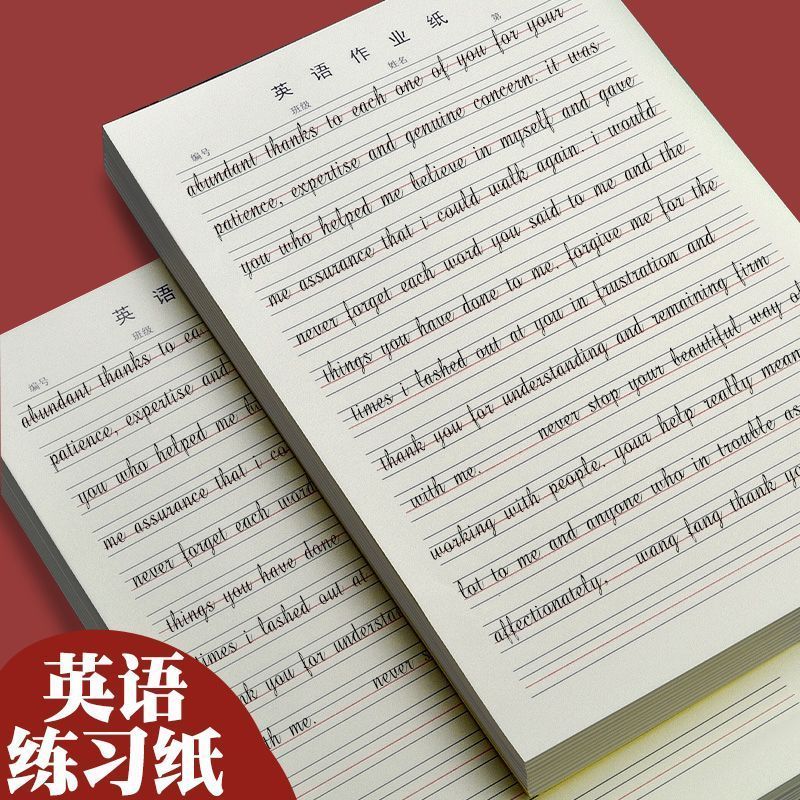 英语作业纸
编号 班级 姓名 第
abundant thanks to each one of you for your
patience, expertise and genuine concern. it was
you who helped me believe in myself and gave
me assurance that i could walk again. i would
never forget each word you said to me and the
things you have done to me. forgive me for the
times i lashed out at you in frustration and
thank you for understanding and remaining firm
with me. never stop your beautiful way of
working with people. your help really mean
lot to me and anyone who in trouble as
affectionately, wang fang thank yo
英语
编号 班级
abundant thanks to eac
patience, expertise and
you who helped me b
me assurance that i co
never forget each word
things you have done
times i lashed out at
nk you for understa
th me. never s
英语
练习纸